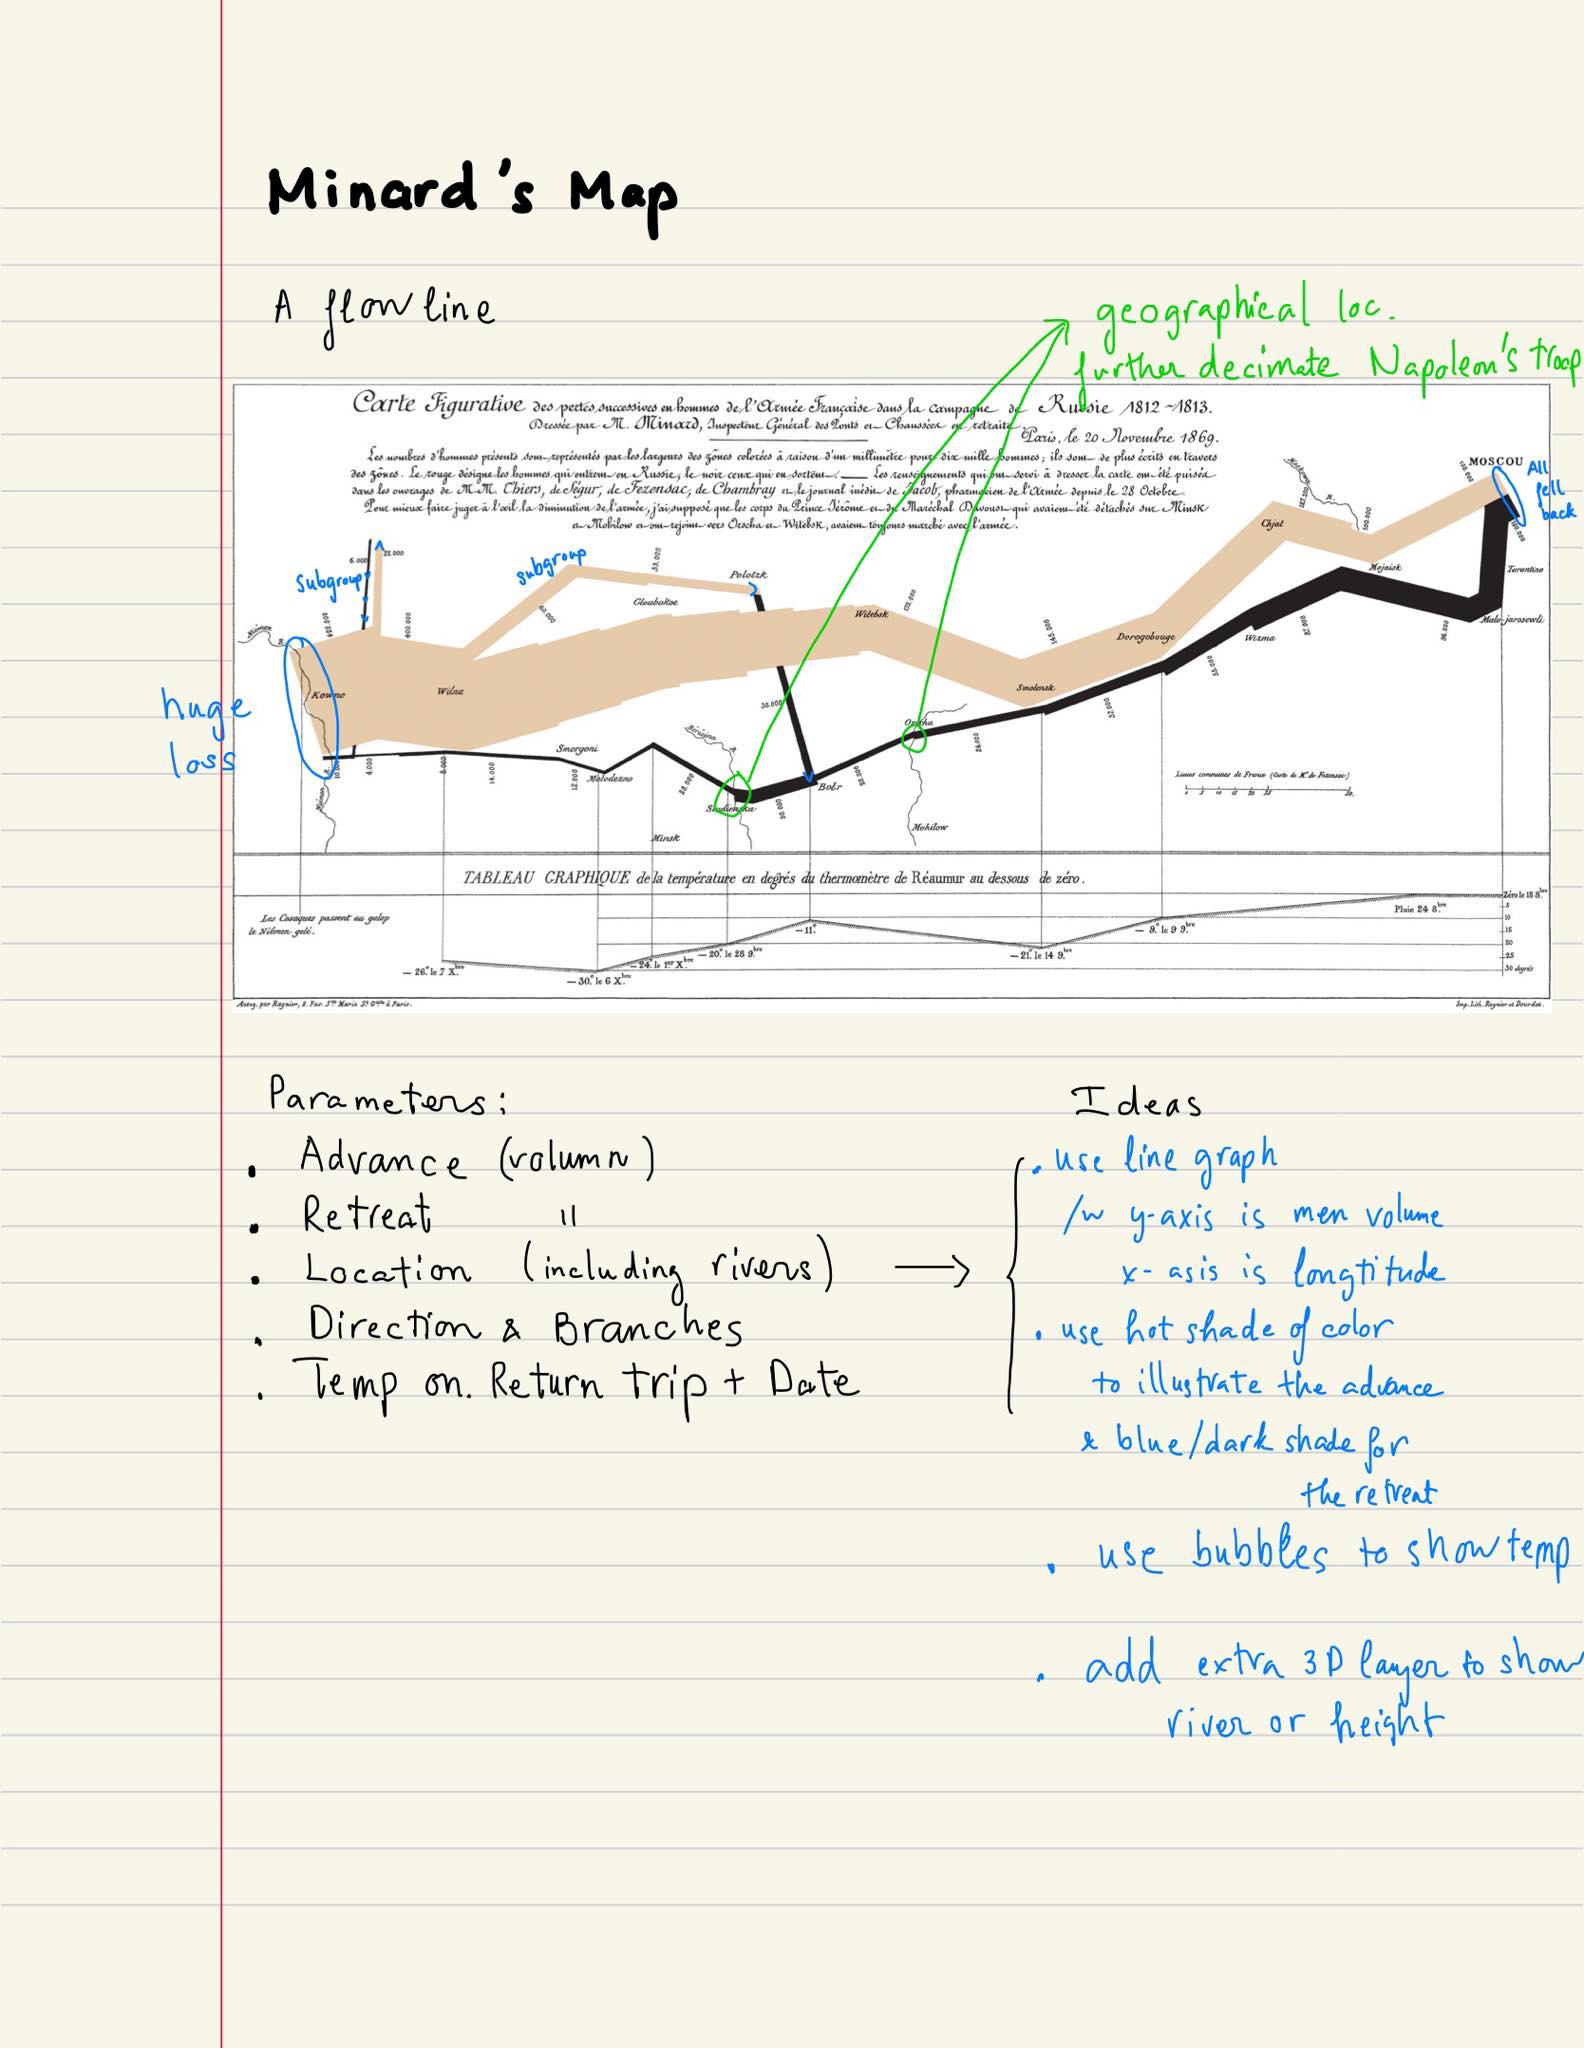 Minard's Map
A flow line
geographical loc.
further decimate Napoleon's troop
Carte Figurative des pertes successives en hommes de l'Armée Française dans la campagne de Russie 1812~1813.
Dressée par M. Minard, Inspecteur Général des Ponts et Chaussées en retraite.
Paris, le 20 Novembre 1869.
Les nombres d'hommes présents sont représentés par les largeurs des zônes colorées à raison d'un millimètre pour dix mille hommes; ils sont de plus écrits en travers
des zônes. Le rouge désigne les hommes qui entrent en Russie, le noir ceux qui en sortent. Les renseignements qui ont servi à dresser la carte ont été puisés
dans les ouvrages de M.M. Chiers, de Ségur, de Fezensac, de Chambray et le journal inédit de Jacob, pharmacien de l'Armée depuis le 28 Octobre.
Pour mieux faire juger à l'œil la diminution de l'armée, j'ai supposé que les corps du Prince Jérôme et du Maréchal Davoust qui avaient été détachés sur Minsk
et Mohilow et ont rejoint vers Orscha et Witebsk, avaient toujours marché avec l'armée.
MOSCOU
All
fell
back
100.000
100.000
Moskowa R.
127.100
100.000
Chjat
Mojaisk
Tarantino
Malo-jarosewli
6.000
22.000
subgroup
subgroup
33.000
Polotzk
60.000
Gloubokoe
175.000
Witebsk
422.000
400.000
145.000
Dorogobouge
Wizma
87.000
96.000
55.000
Niémen R.
huge
loss
Kowno
Wilna
Smolensk
37.000
30.000
Orscha
24.000
Bérézina R.
Smorgoni
Molodezno
10.000
4.000
8.000
14.000
12.000
28.000
50.000
20.000
Studienska
Bobr
Niémen R.
Minsk
Mohilow
Lieues communes de France (Carte de M. de Fezensac)
1 5 10 15 20 25 50.
TABLEAU GRAPHIQUE de la température en degrés du thermomètre de Réaumur au dessous de zéro.
Les Cosaques passent au galop
le Niémen gelé.
Zéro le 18 8.bre
Pluie 24 8.bre
5
10
15
20
25
30 degrés
— 9.° le 9 9.bre
— 11.°
— 21.° le 14 9.bre
— 20.° le 28 9.bre
— 24.° le 1.er X.bre
— 30.° le 6 X.bre
— 26.° le 7 X.bre
Autog. par Regnier, 8. Pas. S.te Marie S.t G.ain à Paris.
Imp. Lith. Regnier et Dourdet.
Parameters:
• Advance (volumn)
• Retreat "
• Location (including rivers) →
• Direction & Branches
• Temp on. Return trip + Date
Ideas
• use line graph
/w y-axis is men volume
x-asis is longtitude
• use hot shade of color
to illustrate the advance
& blue/dark shade for
the retreat
• use bubbles to show temp
• add extra 3D layer to show
river or height